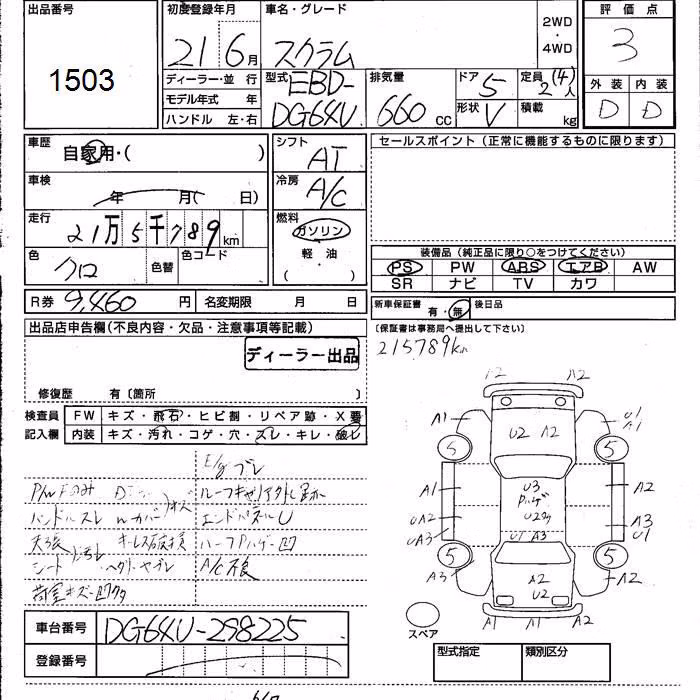 出品番号
1503
初度登録年月
21 6月
車名・グレード
スクラム
2WD
・
4WD
評価点
3
ディーラー・並行
モデル年式 年
ハンドル 左・右
型式
EBD-
DG64V
排気量
660 cc
ドア 5
形状 V
定員 2(4)人
積載 kg
外装 内装
D D
車歴
自家用・( )
車検
年 月( 日)
走行
21万5千789km
色
クロ
色替
色コード
R券 9,460 円
名変期限 月 日
シフト
AT
冷房
A/C
燃料
ガソリン
軽・油
( )
セールスポイント(正常に機能するものに限ります)
装備品(純正品に限り○をつけてください)
PS PW ABS エアB AW
SR ナビ TV カワ
新車保証書
有・無
後日品
〔保証書は事務局へ提出して下さい〕
215789km
出品店申告欄(不良内容・欠品・注意事項等記載)
ディーラー出品
修復歴 有〔箇所 〕
検査員
記入欄
FW キズ・飛石・ヒビ割・リペア跡・X要
内装 キズ・汚れ・コゲ・穴・スレ・キレ・破レ
E/gブレ
P/WFのみ
ハンドルスレ
エンドパネルU
シート
A/C不良
A2 A2
A1 U2 A2 U1
A1
5 5
A1 U3 A2
Pハゲ
UA2 U2 A3
UA3 U1 A3 U1
5 5
A3 A2 A2
U2
A1 A2 A1
スペア
車台番号 DG64V-298225
登録番号
型式指定 類別区分